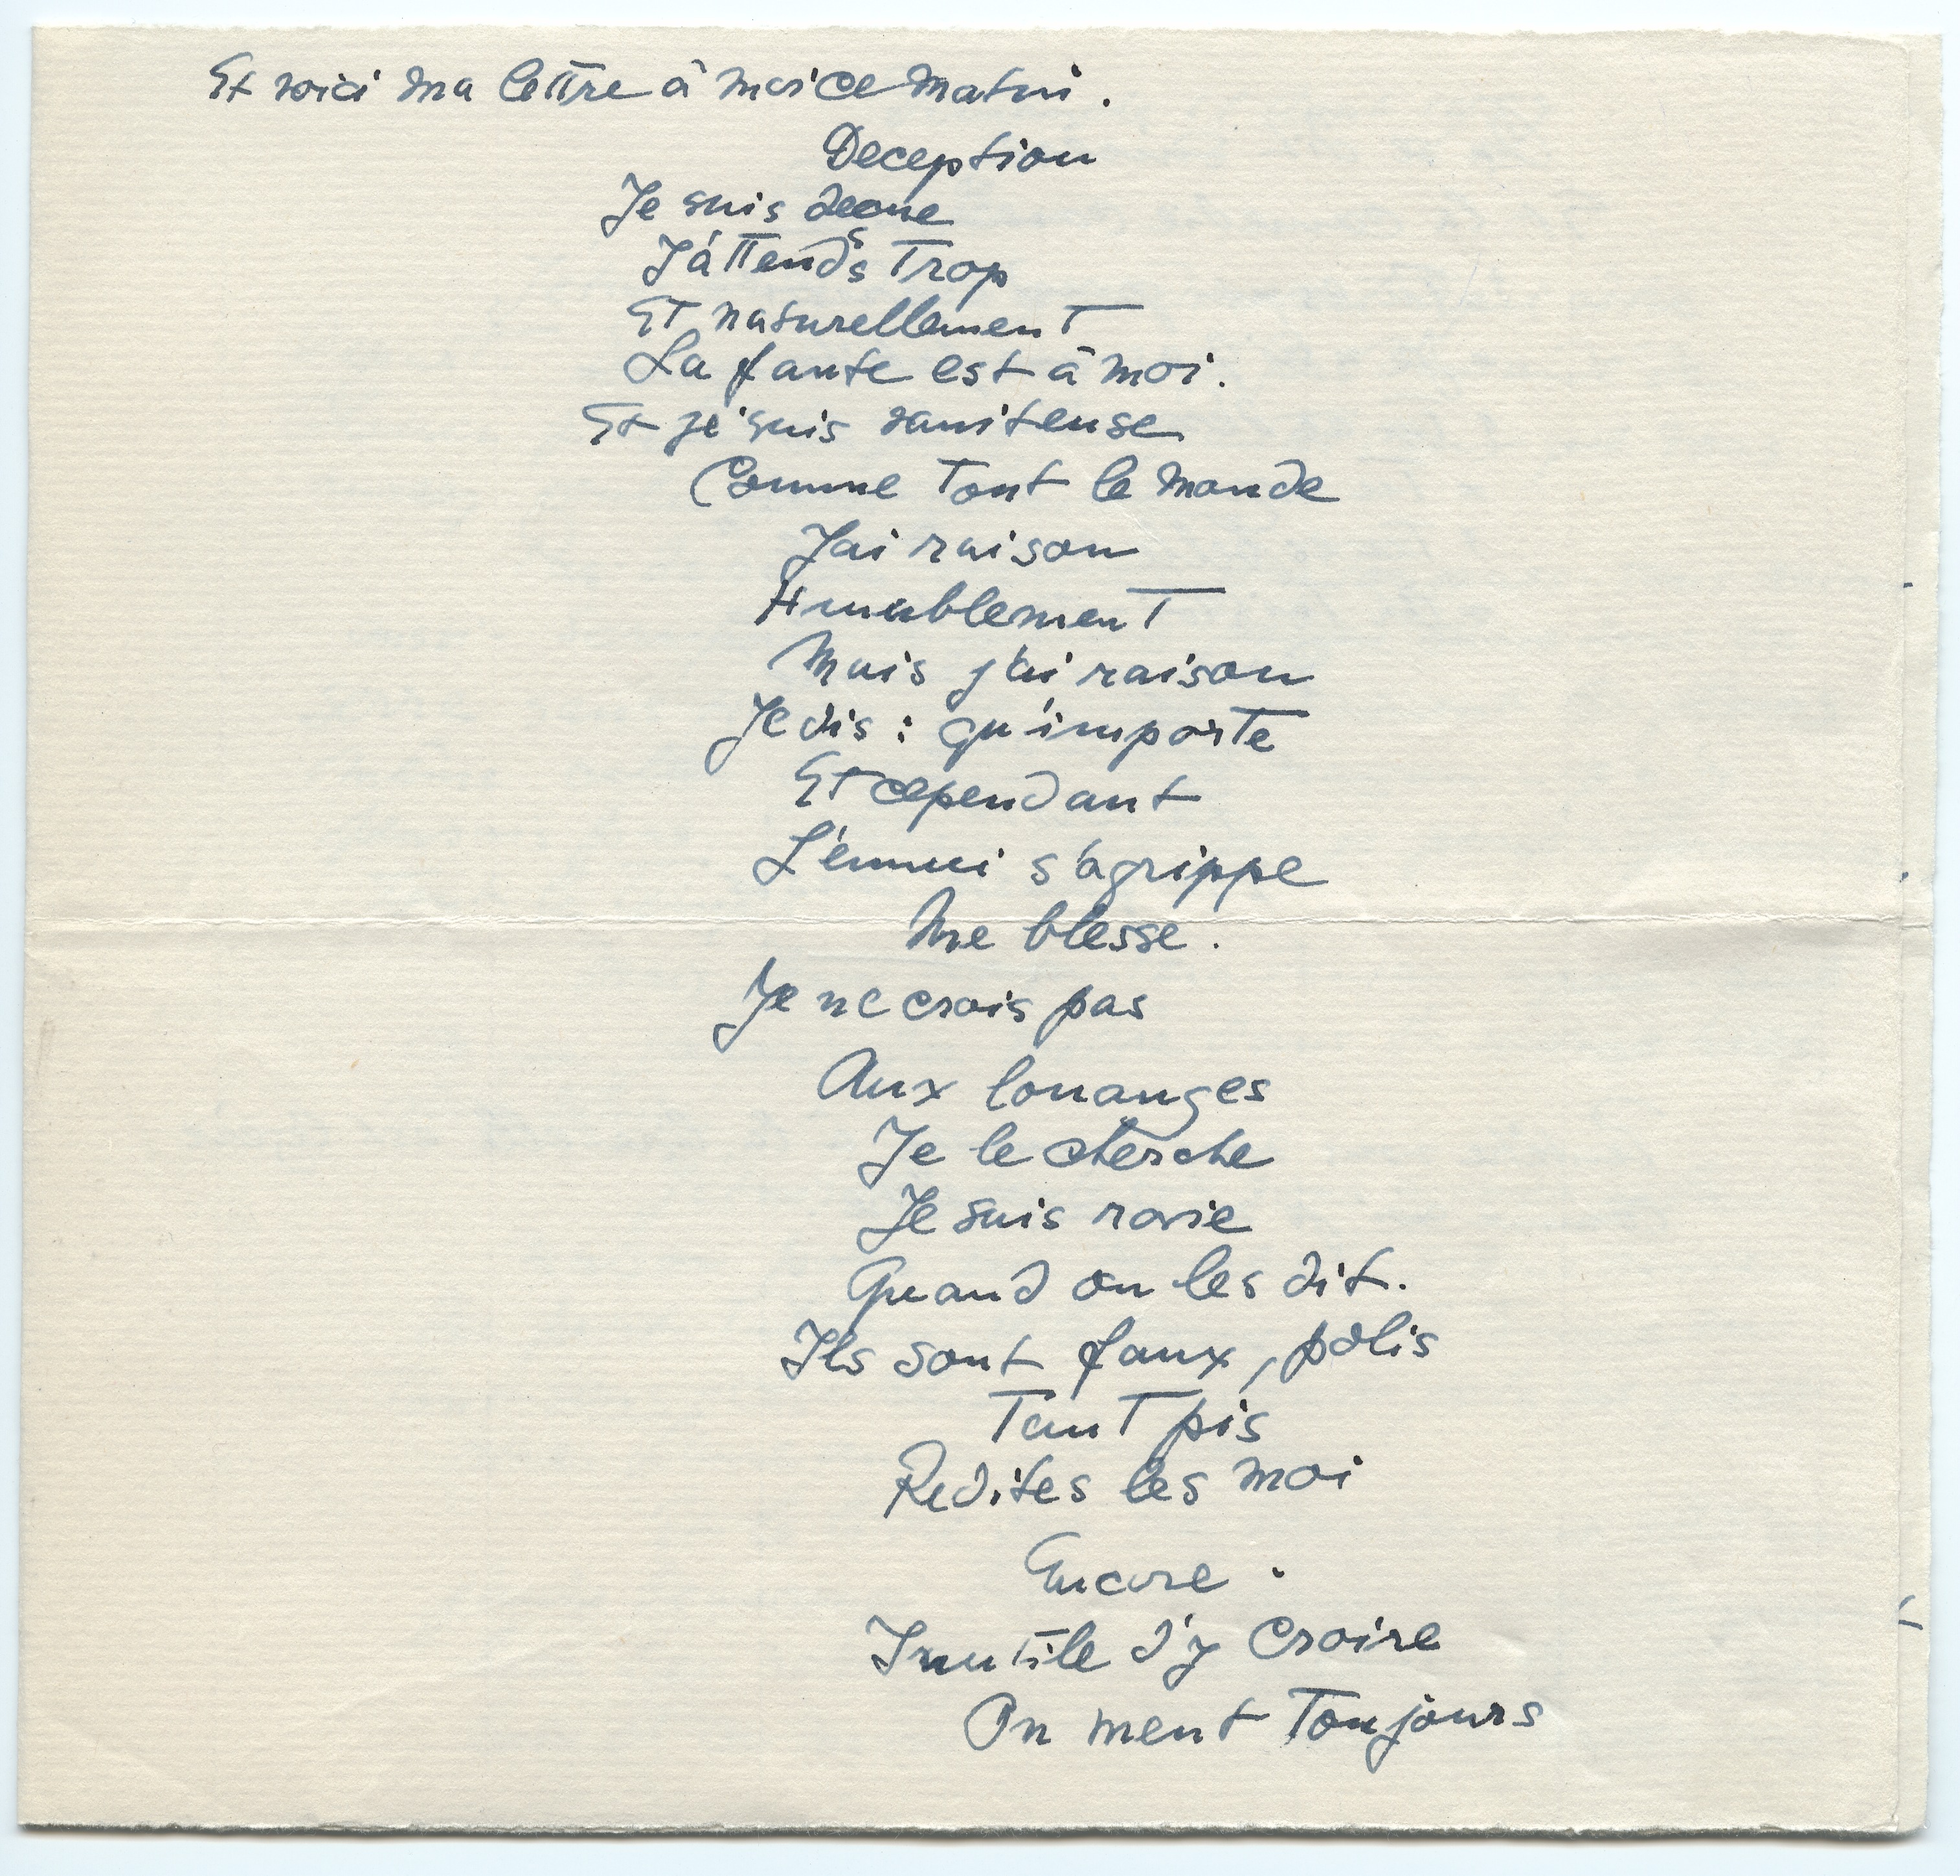 Et voici ma lettre à moi ce matin.
Deception
Je suis decue
J'áttends Trop
Et naturellement
La faute est à moi.
Et je suis vaniteuse
Comme Tout le monde
J'ai raison
Humblement
Mais j'ai raison
Je dis : qu'importe
Et cependant
L'ennui s'agrippe
Me blesse.
Je ne crois pas
Aux louanges
Je le cherche
Je suis ravie
Quand on les dit.
Ils sont faux, polis
Tant pis
Redites les moi
Encore.
Inutile d'y croire
On ment Toujours